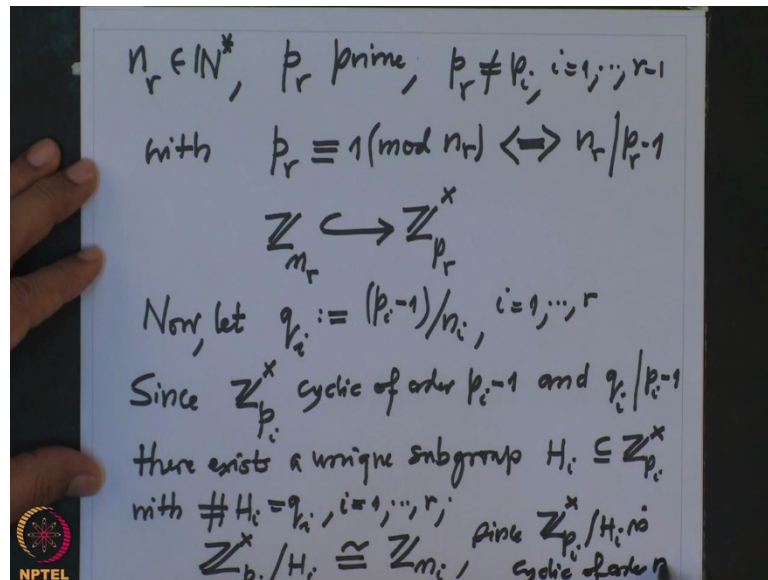 n_r ∈ ℕ*, p_r prime, p_r ≠ p_i, i=1,..., r-1
with p_r ≡ 1 (mod n_r) ⟺ n_r | p_r-1
ℤ_{n_r} ↪ ℤ_{p_r}^×
Now, let q_i := (p_i-1)/n_i, i=1,..., r
Since ℤ_{p_i}^× cyclic of order p_i-1 and q_i | p_i-1
there exists a unique subgroup H_i ⊆ ℤ_{p_i}^×
with #H_i = q_i, i=1,..., r,
ℤ_{p_i}^×/H_i ≅ ℤ_{n_i}, since ℤ_{p_i}^×/H_i is
cyclic of order n
NPTEL